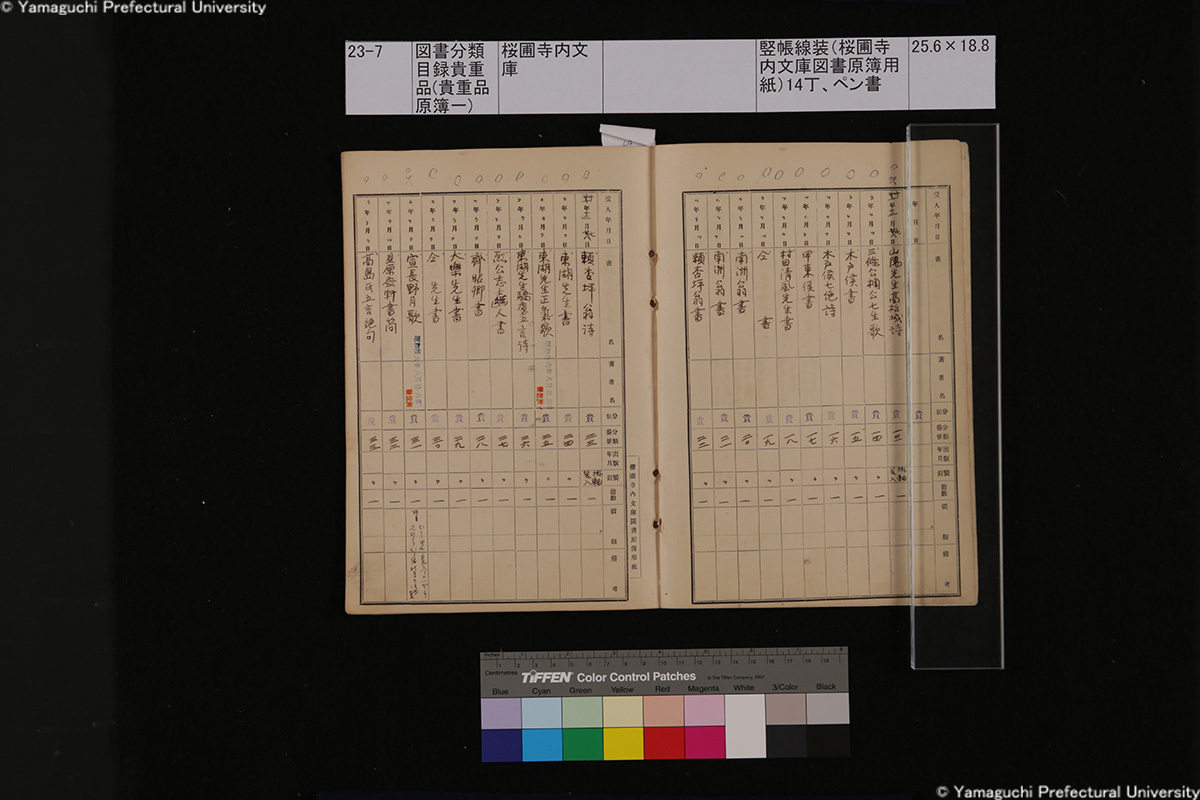 © Yamaguchi Prefectural University
23-7
図書分類
目録貴重
品(貴重品
原簿一)
桜圃寺内文
庫
竪帳線装(桜圃寺
内文庫図書原簿用
紙)14丁、ペン書
25.6×18.8
受入年月日
書名
著者名
分類
分類番號
出版年月
装釘
冊数
價額
備考
年月日
貴
山陽先生高松城詩
貴
一三
一
三條公楠公七生歌
貴
一四
〃
一
木戸侯書
貴
一五
〃
一
木戸侯七絶詩
貴
一六
〃
一
甲東侯書
貴
一七
〃
一
村田清風先生書
貴
一八
〃
一
仝 書
貴
一九
〃
一
南洲翁書
貴
二〇
〃
一
南洲翁書
貴
二一
〃
一
頼杏坪翁書
貴
二二
〃
一
櫻圃寺内文庫圖書原簿用紙
受入年月日
書名
著者名
分類
分類番號
出版年月
装釘
冊数
價額
備考
頼杏坪翁詩
貴
二三
一
東湖先生書
貴
二四
〃
一
東湖先生正氣歌
貴
二五
〃
一
東湖先生五言詩
貴
二六
〃
一
烈公志士幽人書
貴
二七
〃
一
齊昭卿書
貴
二八
〃
一
大樂先生書
貴
二九
〃
一
仝 先生書
貴
三〇
〃
一
宣長野月歌
貴
三一
〃
一
貝原益軒書簡
貴
三二
〃
一
高島氏五言絶句
貴
三三
〃
一
Inches
Centimetres
TIFFEN Color Control Patches
© The Tiffen Company, 2007
Blue
Cyan
Green
Yellow
Red
Magenta
White
3/Color
Black
© Yamaguchi Prefectural University